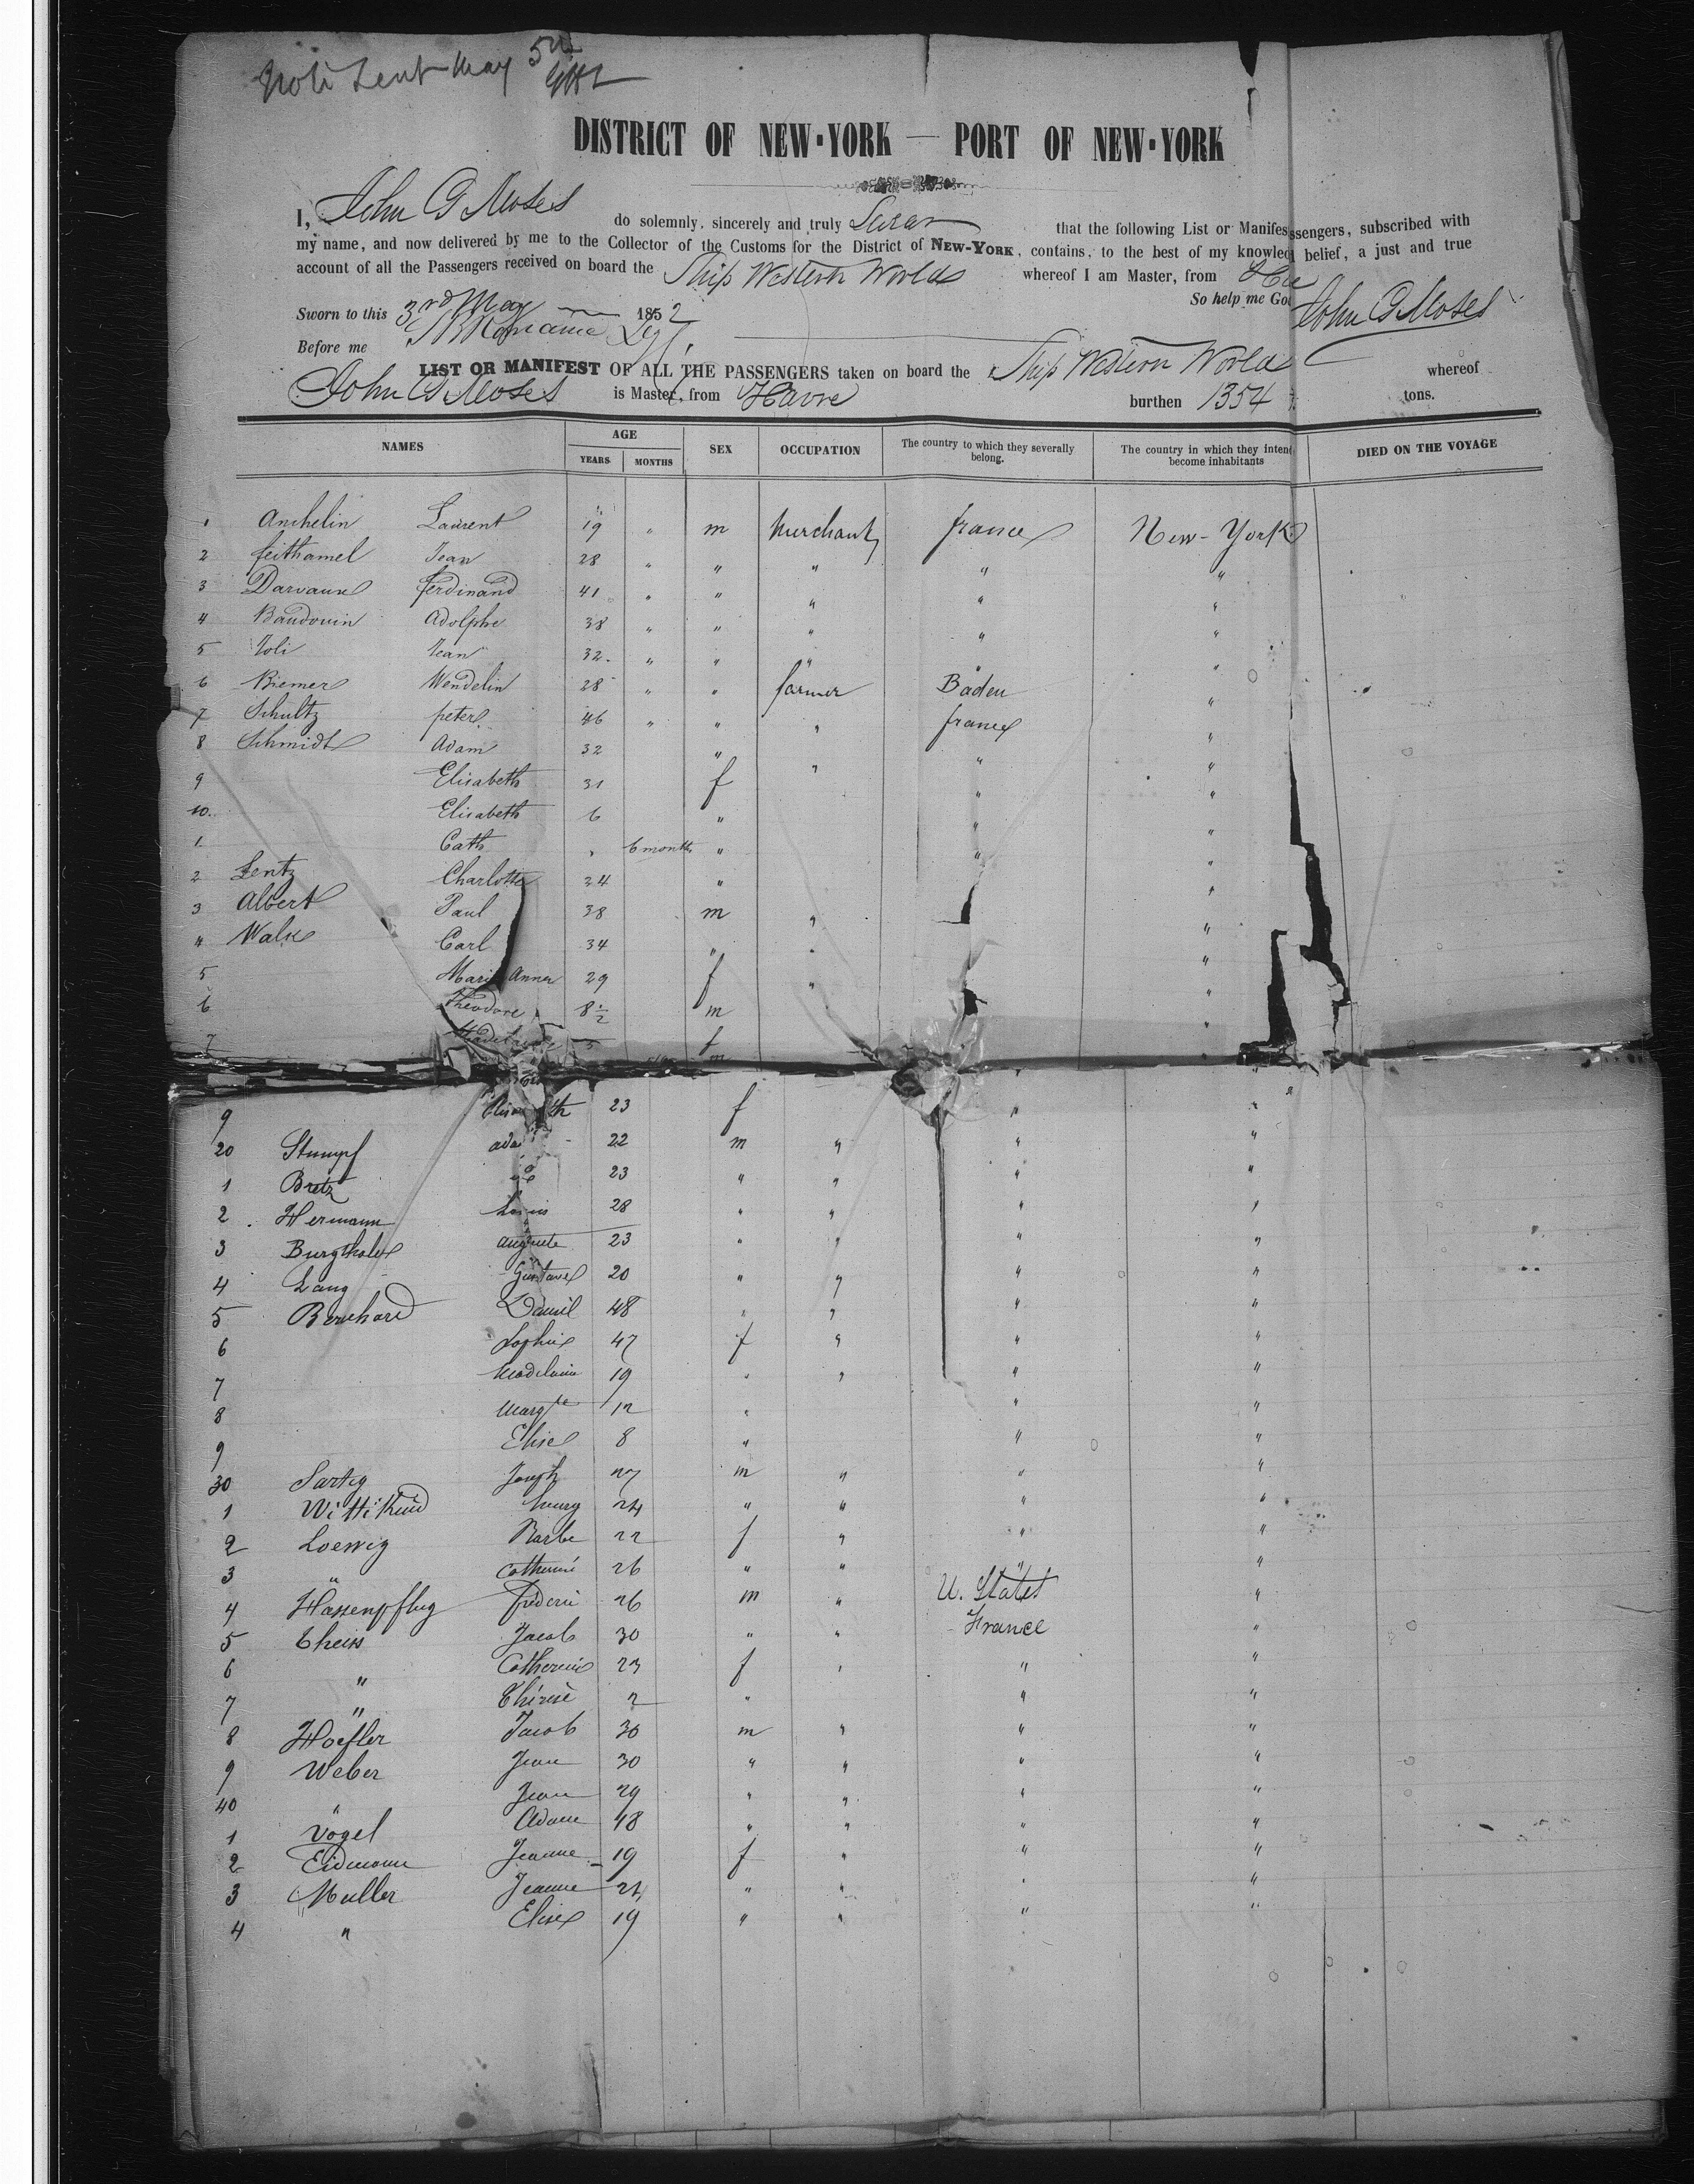 Sent May 5th
DISTRICT OF NEW-YORK — PORT OF NEW-YORK
I, John G Moses do solemnly, sincerely and truly Swear that the following List or Manifes ssengers, subscribed with
my name, and now delivered by me to the Collector of the Customs for the District of NEW-YORK, contains, to the best of my knowled belief, a just and true
account of all the Passengers received on board the Ship Western World whereof I am Master, from
Sworn to this 3rd May 1852 So help me God
John G Moses
Before me
LIST OR MANIFEST OF ALL THE PASSENGERS taken on board the Ship Western World whereof
John G Moses is Master, from Havre burthen 1354 tons.
NAMES AGE YEARS MONTHS SEX OCCUPATION The country to which they severally belong. The country in which they inten become inhabitants DIED ON THE VOYAGE
1 Anchelin Laurent 19 " m Merchant france New-York
2 feithamel Jean 28 " " " " "
3 Darvaux ferdinand 41 " " " " "
4 Baudouin Adolphe 38 " " " " "
5 Joli Jean 32 " " " " "
6 Biemer Wendelin 28 " " farmer Baden "
7 Schultz peter 46 " " " france "
8 Schmidt Adam 32 " " " "
9 Elisabeth 31 f " "
10 Elisabeth 6 " " "
1 Cath " 6 months " " "
2 Lentz Charlotte 24 " "
3 Albert Paul 38 m " "
4 Walx Carl 34 " " "
5 Marie Anna 29 f " "
6 Theodore 8 1/2 m "
7 5 f
m " "
9 23 f " "
20 Stumpf ada 22 m " " "
1 Bretz 23 " " " "
2 Hermann Louis 28 " " " "
3 Burgthaler auguste 23 " " " "
4 Lang Gustave 20 " " " "
5 Bernhard Daniel 48 " " " "
6 Sophie 47 f " " "
7 Madelaine 19 " " " "
8 Margte 12 " " "
9 Elise 8 " " "
30 Sartig Joseph 27 m " " "
1 Wittikind henry 24 " " " "
2 Loewig Barbe 22 f " " "
3 " Catherine 26 " " " "
4 Hassenpflug frederic 26 m " U. States "
5 Theiss Jacob 30 " " France "
6 " Catherine 23 f " " "
7 " Thérèse 2 " " "
8 Hoefler Jacob 30 m " " "
9 Weber Jean 30 " " " "
40 " Jean 29 " " " "
1 Vogel Adam 48 " " " "
2 Eidmann Jeanne 19 f " " "
3 Muller Jeanne 24 " " " "
4 " Elise 19 " " " "